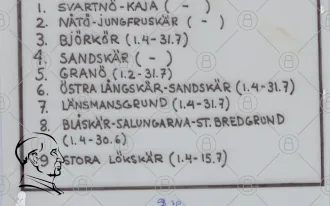 1. SVARTNÖ-KAJA ( - )
2. NÅTÖ-JUNGFRUSKÄR ( - )
3. BJÖRKÖR (1.4-31.7)
4. SANDSKÄR ( - )
5. GRANÖ (1.2-31.7)
6. ÖSTRA LÅNGSKÄR-SANDSKÄR (1.4-31.7)
7. LÄNSMANSGRUND (1.4-31.7)
8. BLÅSKÄR-SALUNGARNA-ST. BREDGRUND
(1.4-30.6)
9. STORA LÖKSKÄR (1.4-15.7)